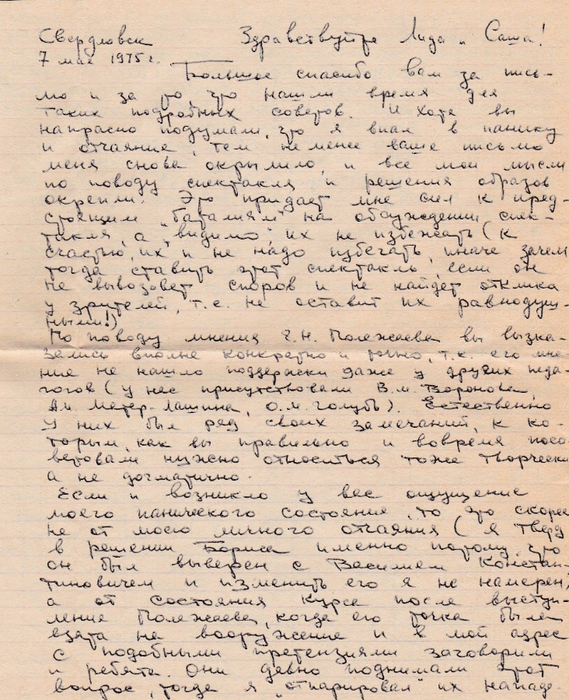 Свердловск Здравствуйте Лида и Саша!
7 мая 1975 г.
Большое спасибо вам за пись-
мо и за то, что нашли время для
таких подробных советов. И хотя вы
напрасно подумали, что я впал в панику
и отчаяние, тем не менее ваше письмо
меня снова окрылило, и все мои мысли
по поводу спектакля и решения образов
окрепли. Это придает мне сил к пред-
стоящим "баталиям" на обсуждении спек-
такля, а "видимо" их не избежать (к
счастью, их и не надо избегать, иначе зачем
тогда ставить этот спектакль, если он
не вызовет споров и не найдет отклика
у зрителей, т.е. не оставит их равнодуш-
ными!)
По поводу мнения Полежаева вы выска-
зались вполне конкретно и ясно, т.к. его мне-
ние не нашло поддержки даже у других педа-
гогов (у нас присутствовали В.М. Воронова,
Метер-Лашина, О.М. Голубь). Естественно
у них был ряд своих замечаний, к ко-
торым, как вы правильно и вовремя посо-
ветовали нужно относиться тоже творчески
а не догматично.
Если и возникло у вас ощущение
моего панического состояния, то это скорее
не от моего личного отчаяния (я тверд
в решении Бориса именно потому, что
он был выверен с Василием Констан-
тиновичем и изменить его я не намерен)
а от состояния курса после выступ-
ления Полежаева, когда его точка была
взята на вооружение и в мой адрес
с подобными претензиями заговорили
и ребята. Они давно поднимали этот
вопрос, тогда я "отпарировал" их напад-